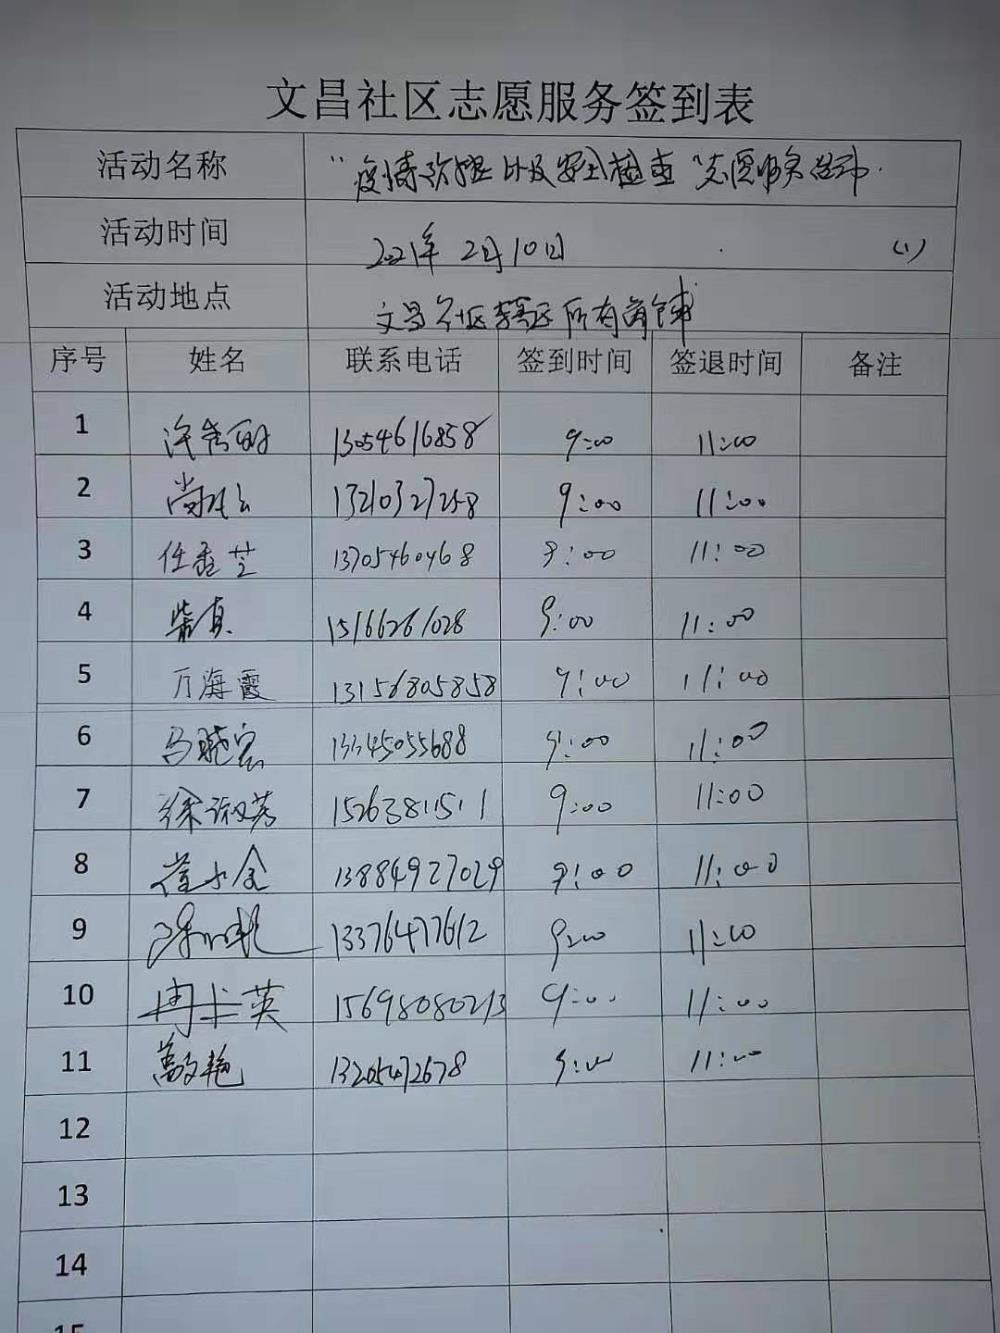 文昌社区志愿服务签到表
活动名称 "疫情防控以及安全检查"志愿服务活动.
活动时间 2021年 2月10日 (1)
活动地点 文昌社区辖区所有商铺
序号 姓名 联系电话 签到时间 签退时间 备注
1 13054616858 9:00 11:00
2 13210327258 9:00 11:00
3 任秀芝 13705460468 9:00 11:00
4 柴真 15166261028 9:00 11:00
5 万海霞 13156805858 9:00 11:00
6 马晓宏 13345055688 9:00 11:00
7 徐淑芳 15263811511 9:00 11:00
8 崔小金 13884927029 9:00 11:00
9 13376477612 9:00 11:00
10 冉英 15698080213 9:00 11:00
11 艳 13205472678 9:00 11:00
12
13
14
15